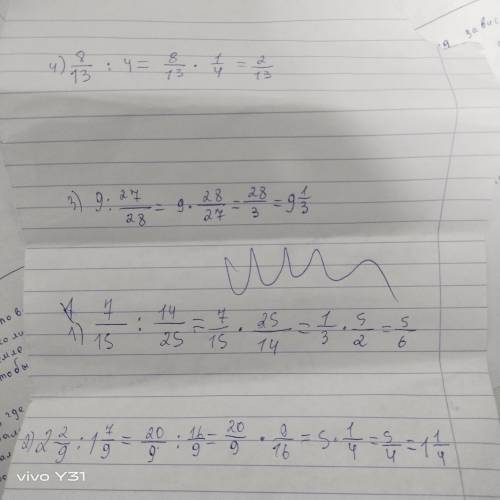 4) 8/13 : 4 = 8/13 · 1/4 = 2/13
9 зави
3) 9 : 27/28 = 9 · 28/27 = 28/3 = 9 1/3
1) 7/15 : 14/25 = 7/15 · 25/14 = 1/3 · 5/2 = 5/6
тобы
где
2) 2 2/9 : 1 7/9 = 20/9 : 16/9 = 20/9 · 9/16 = 5 · 1/4 = 5/4 = 1 1/4
vivo Y31